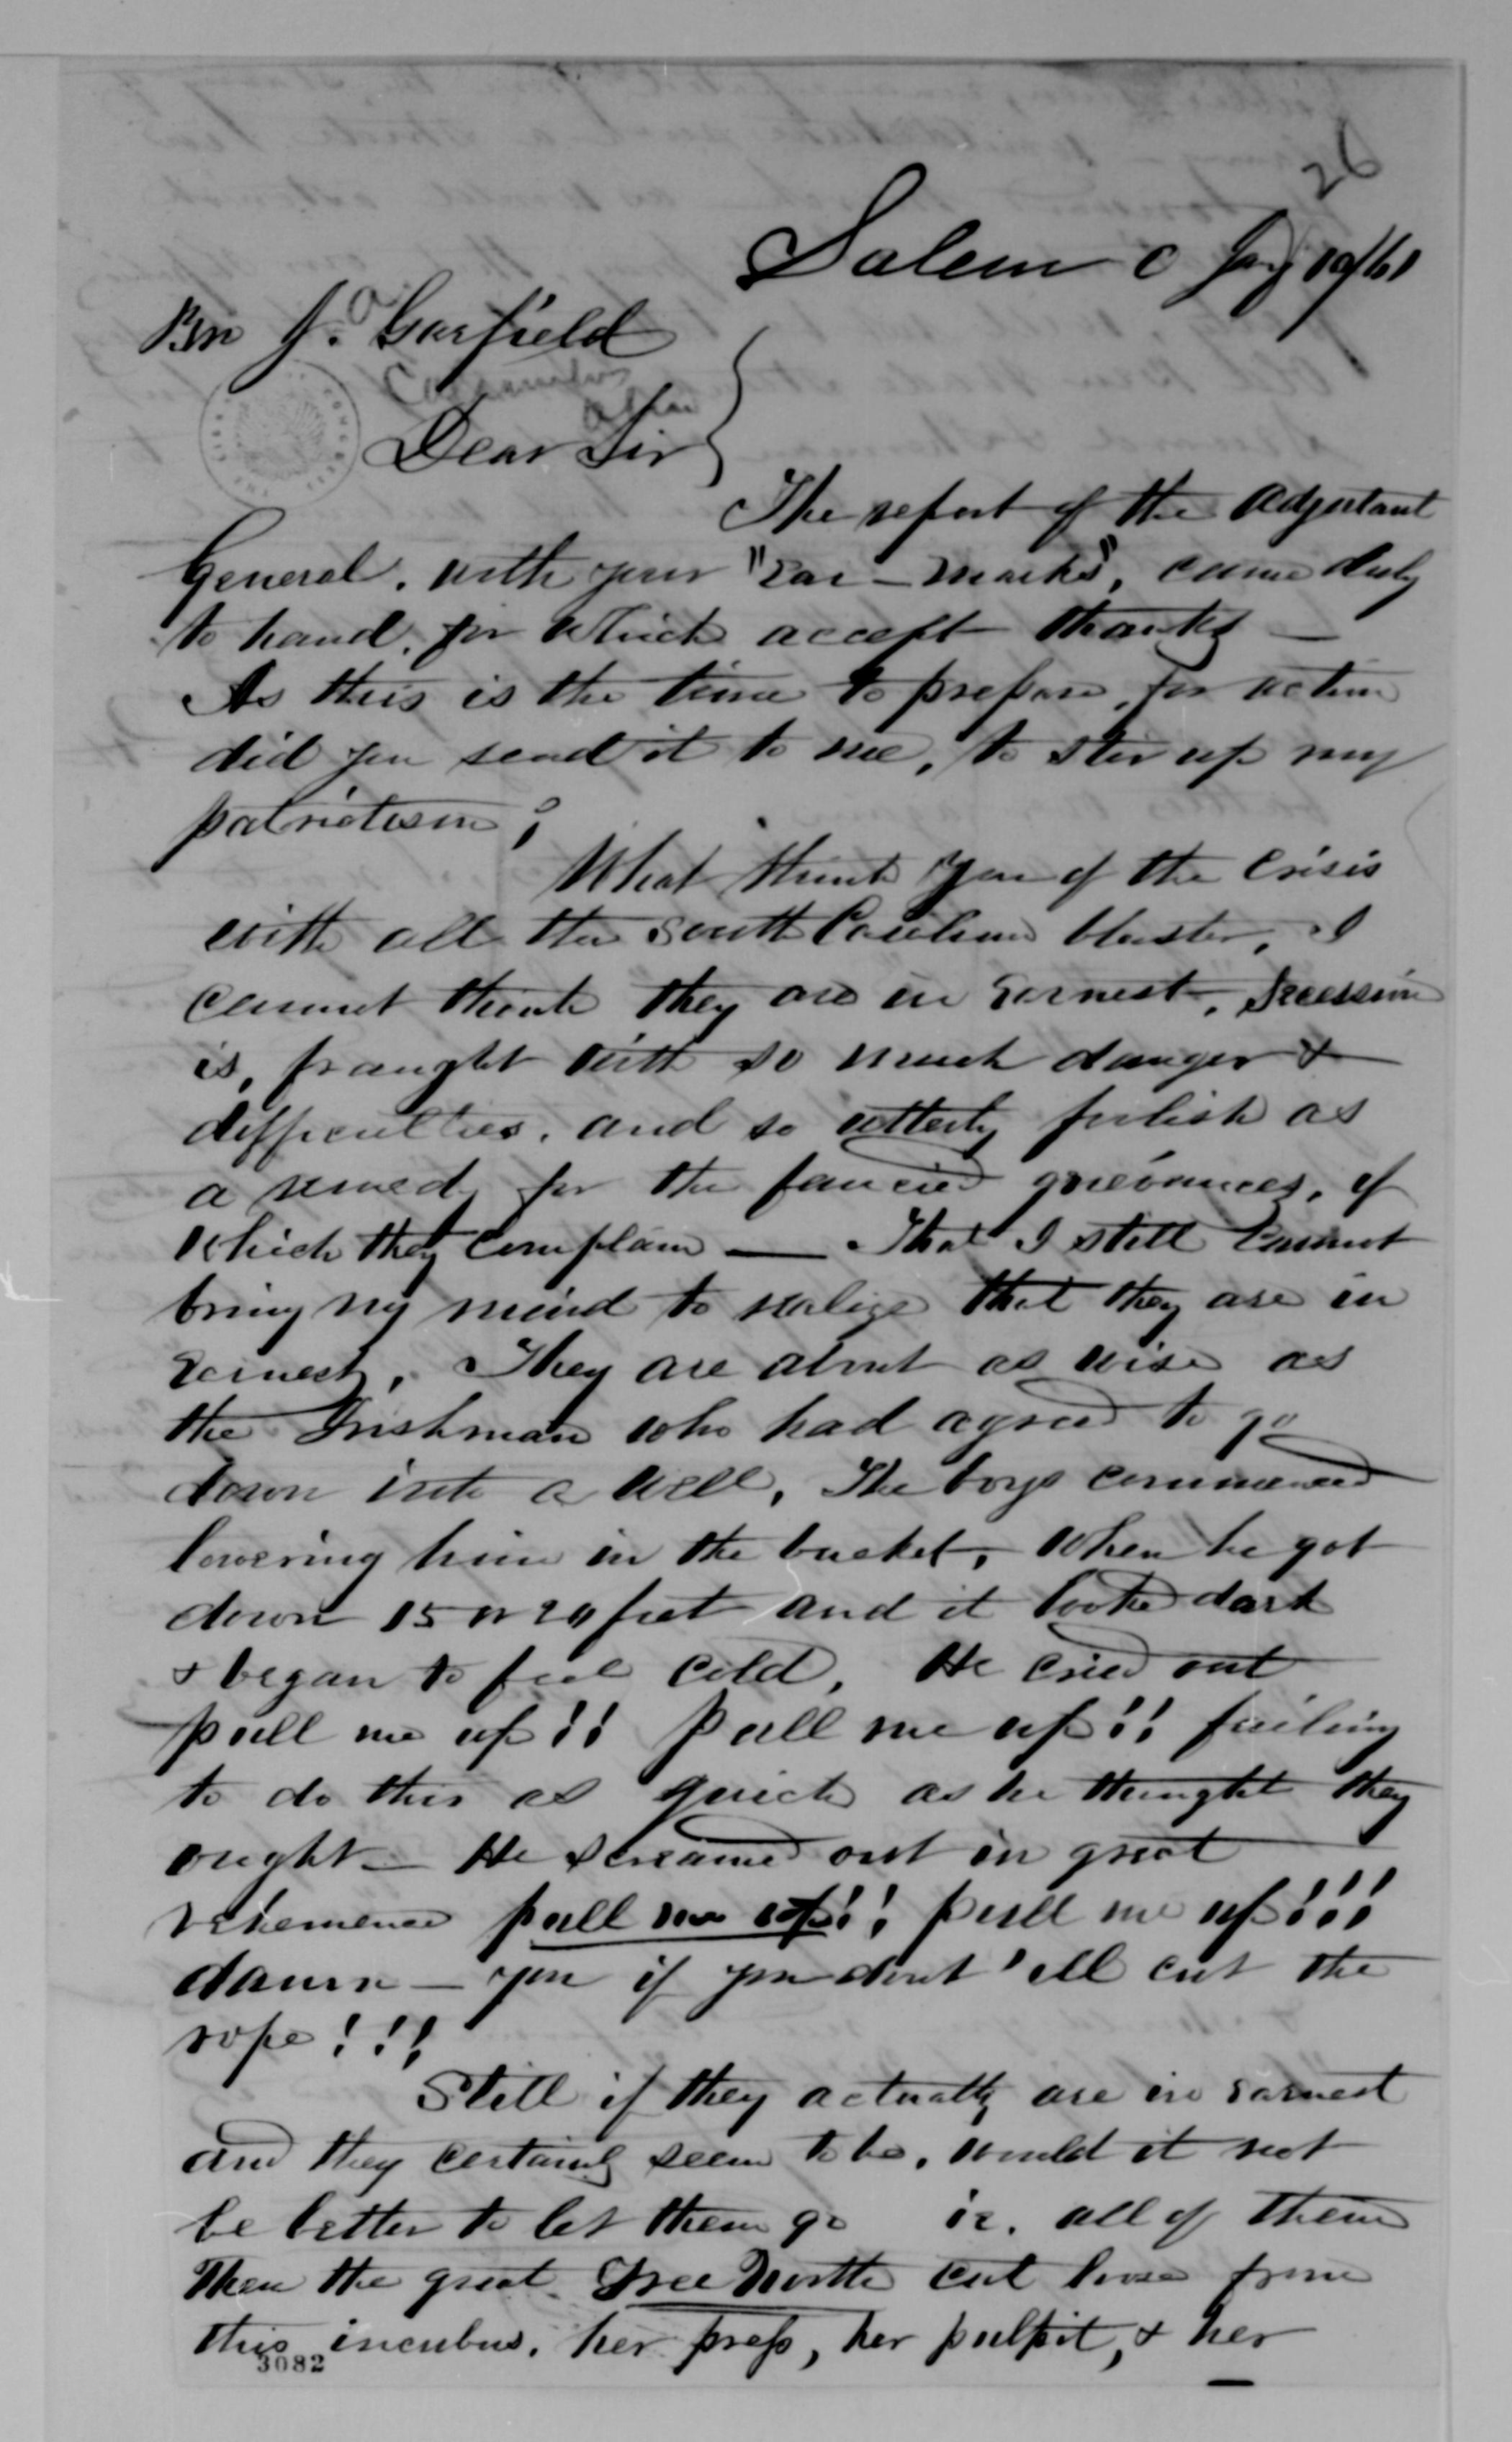 26
Salem O Jany 19/61
Bro J. A Garfield
Columbus
Ohio
Dear Sir
The report of the Adjutant
General. with your "Ear-marks", came duly
to hand, for which accept thanks —
As this is the time to prepare, for action
did you send it to me, to stir up my
patriotism;
What think you of the Crisis
with all the South Carolina bluster, I
cannot think they are in Earnest. Secession
is, fraught with so much danger &
difficulties. and so utterly foolish as
a remedy for the fancied grievances, of
which they complain — That I still Cannot
bring my mind to realize that they are in
Earnest, They are about as wise as
the Irishman who had agreed to go
down into a well, The boys commenced
lowering him in the bucket, When he got
down 15 or 20 feet and it looked dark
& began to feel cold, He cried out
pull me up!! pull me up!! failing
to do this as quick as he thought they
ought — He screamed out in great
vehemence pull me up!! pull me up!!!
damn — you if you dont 'ell cut the
rope!!!
Still if they actually are in earnest
and they certainly seem to be, would it not
be better to let them go ie. all of them
Then the great Free North cut loose from
this incubus, her press, her pulpit, & her
3082